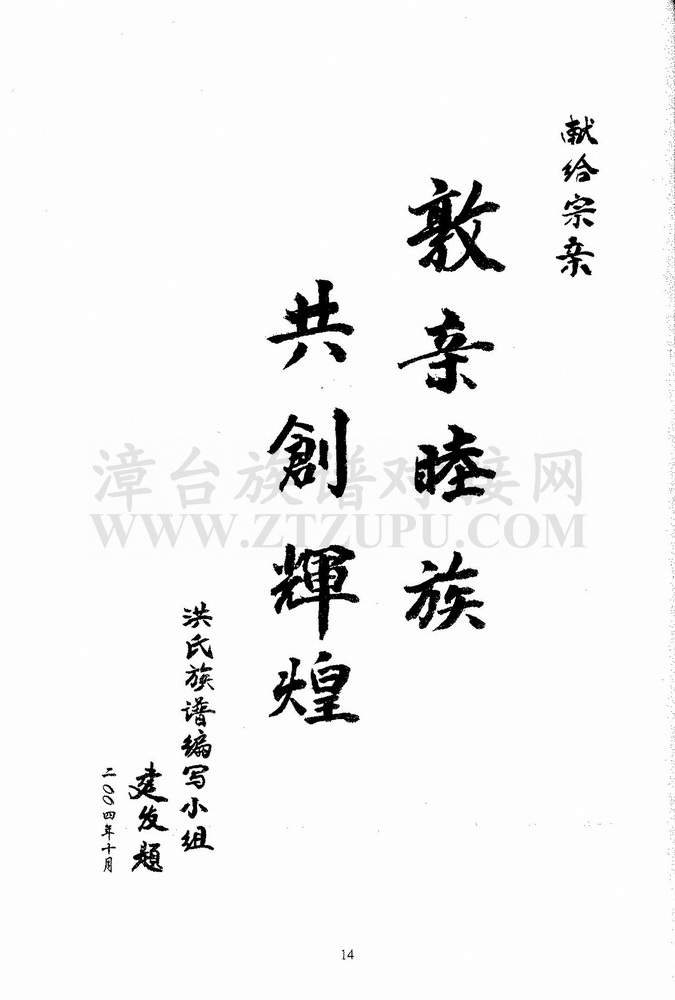 献给宗亲
敦亲睦族
共創輝煌
洪氏族谱编写小组
建发题
二〇〇四年十月
漳台族谱对接网
WWW.ZTZUPU.COM
14